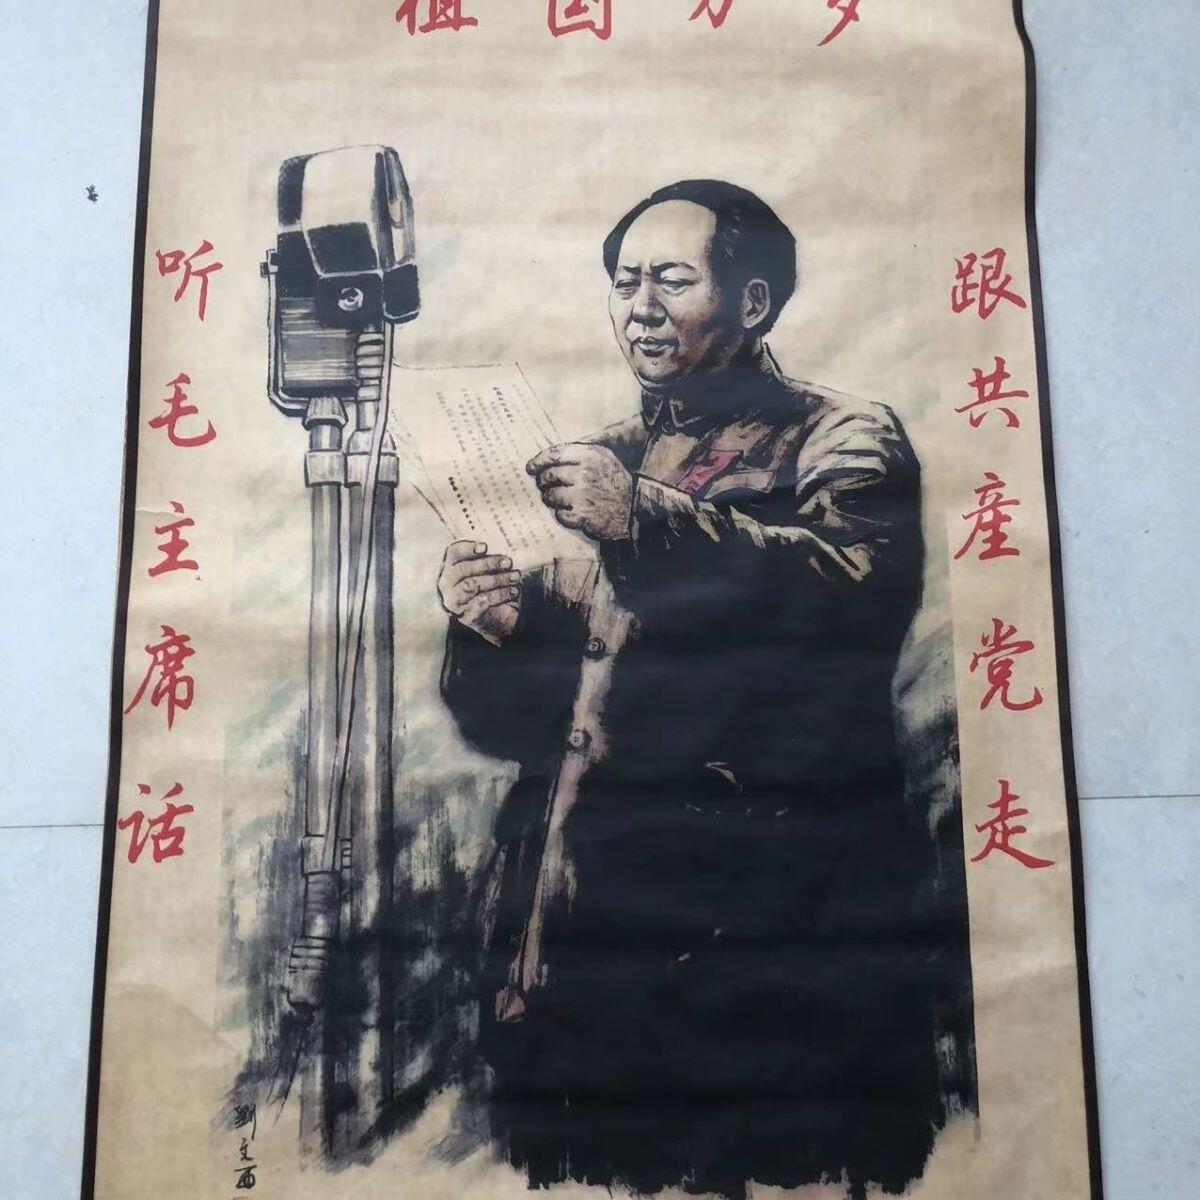 祖国万岁
听毛主席话
跟共产党走
劉文西